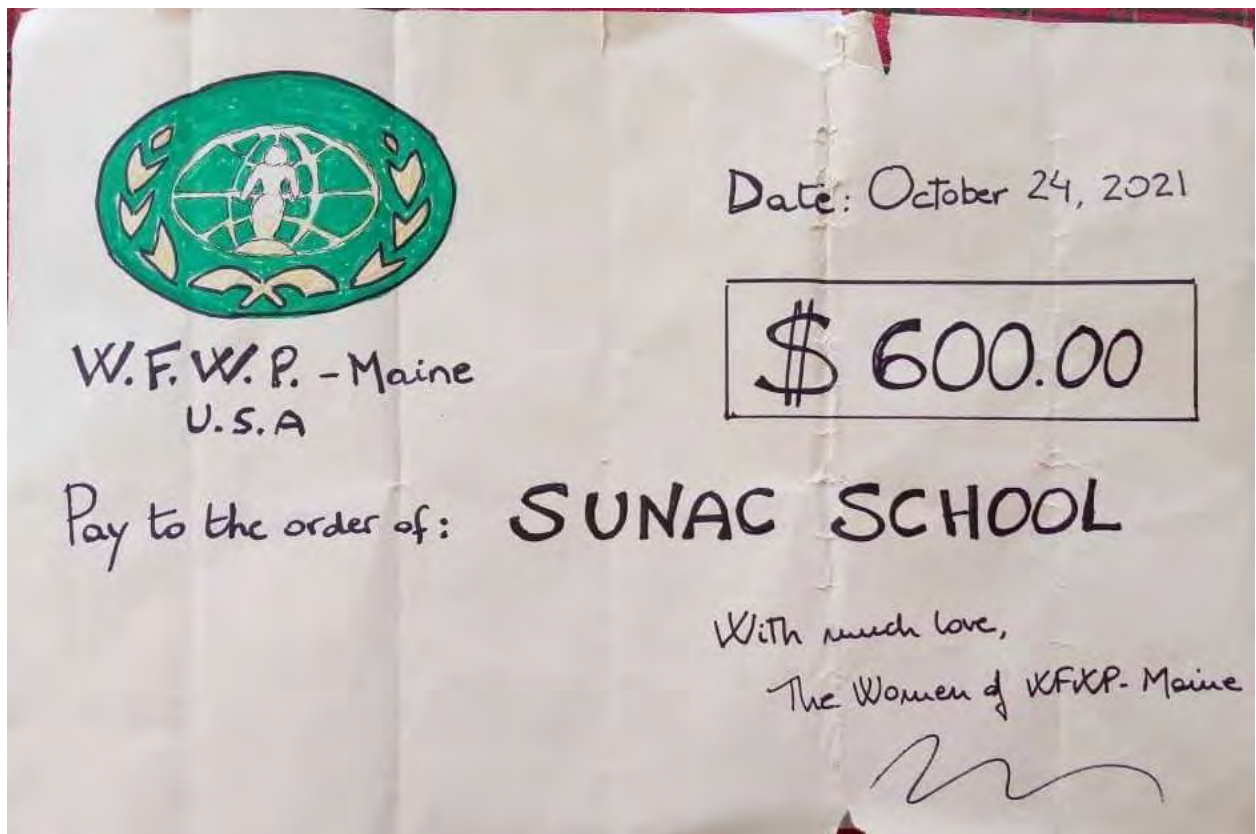 Date: October 24, 2021
$ 600.00
W.F.W.P. - Maine
U.S.A
Pay to the order of: SUNAC SCHOOL
With much love,
The Women of WFWP - Maine